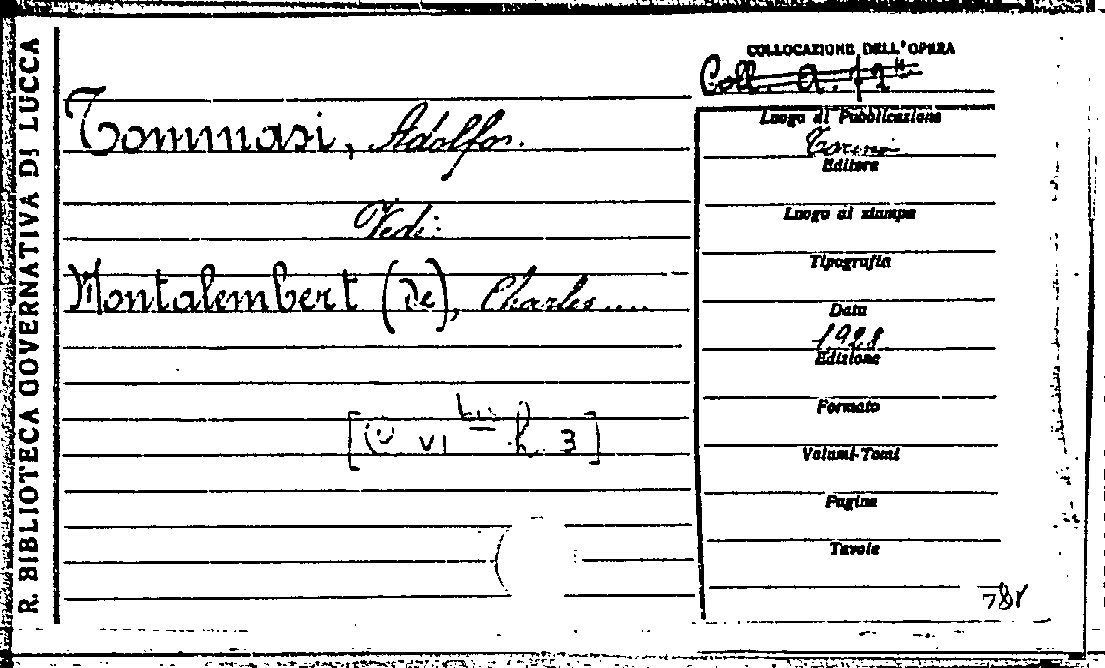 R. BIBLIOTECA GOVERNATIVA DI LUCCA
COLLOCAZIONE DELL'OPERA
Coll. a. 72
Tommasi, Adolfo.
Vedi:
Montalembert (de), Charles....
[ VI bis h. 3 ]
Luogo di Pubblicazione
Torino
Editore
Luogo di stampa
Tipografia
Data
1928
Edizione
Formato
Volumi-Tomi
Pagine
Tavole